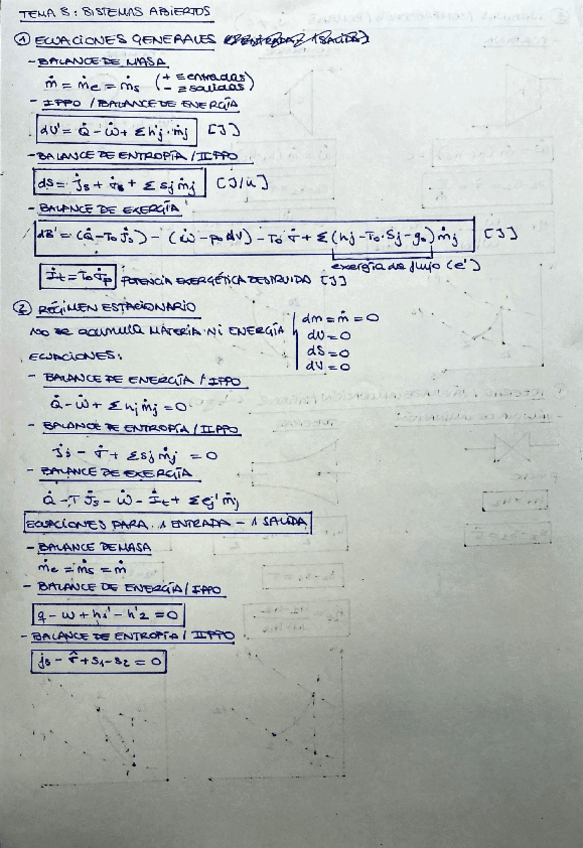 TEMA 5: SISTEMAS ABIERTOS
① ECUACIONES GENERALES
- BALANCE DE MASA
ṁ = ṁe = ṁs (+ Σ entradas
- Σ salidas)
- IPPO / BALANCE DE ENERGÍA
dU' = Q̇ - ẇ + Σ h'j · ṁj [J]
- BALANCE DE ENTROPÍA / IIPPO
dS = J̇s + σ̇s + Σ sj ṁj [J/K]
- BALANCE DE EXERGÍA
dB' = (Q̇ - To J̇s) - (ẇ - po dV) - To σ̇ + Σ (hj - To · Sj - go) ṁj [J]
exergía de flujo (e')
İt = To σ̇p POTENCIA EXERGÉTICA DESTRUIDA [J]
② RÉGIMEN ESTACIONARIO
NO SE ACUMULA MATERIA NI ENERGÍA
dm = ṁ = 0
dU = 0
dS = 0
dV = 0
ECUACIONES:
- BALANCE DE ENERGÍA / IPPO
Q̇ - ẇ + Σ hj ṁj = 0
- BALANCE DE ENTROPÍA / IIPPO
J̇s - σ̇ + Σ sj ṁj = 0
- BALANCE DE EXERGÍA
Q̇ - T J̇s - ẇ - İt + Σ ej' ṁj
ECUACIONES PARA 1 ENTRADA - 1 SALIDA
- BALANCE DE MASA
ṁe = ṁs = ṁ
- BALANCE DE ENERGÍA / IPPO
q - w + h1' - h'2 = 0
- BALANCE DE ENTROPÍA / IIPPO
js - σ̂ + s1 - s2 = 0